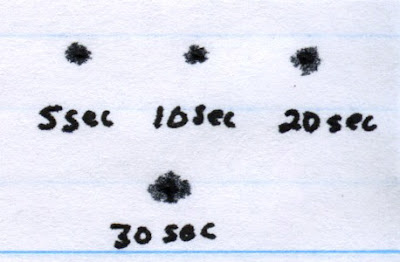 5sec 10sec 20sec
30 sec